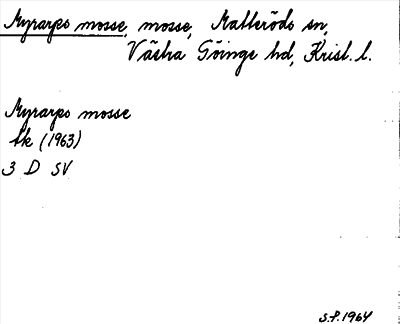 Myrarps mosse, mosse, Matteröds sn,
Västra Göinge hd, Krist. l.
Myrarps mosse
tk (1963)
3 D SV
S.P. 1964